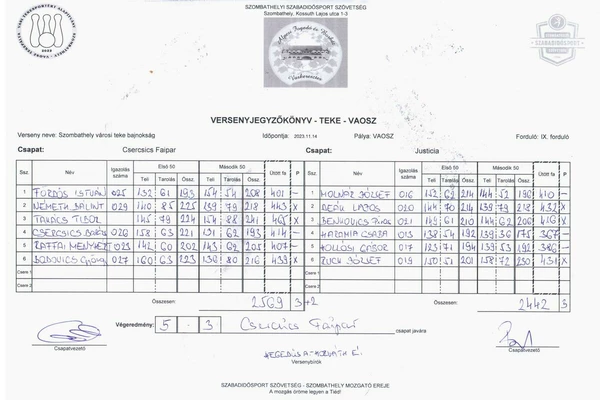 SZOMBATHELYI SZABADIDŐSPORT SZÖVETSÉG
Szombathely, Kossuth Lajos utca 1-3
SZABADIDŐSPORT
VERSENYJEGYZŐKÖNYV - TEKE - VAOSZ
Verseny neve: Szombathely városi teke bajnokság Időpontja: 2023.11.14 Pálya: VAOSZ Forduló: IX. forduló
Csapat: Csercsics Faipar Csapat: Justicia
Ssz. Név Igazolás száma Első 50 Második 50 Ütött fa P Ssz. Név Igazolás száma Első 50 Második 50 Ütött fa P
Teli Tarolás Össz. Teli Tarolás Össz. Teli Tarolás Össz. Teli Tarolás Össz.
1 FODOS ISTVÁN 025 132 61 193 154 54 208 401 - 1 MOLNÁR JÓZSEF 016 152 62 214 144 52 196 410 -
2 NÉMETH BÁLINT 029 140 85 225 139 79 218 443 X 2 DEÁK LAJOS 020 144 70 214 139 79 218 432 X
3 TAKÁCS TIBOR 145 79 224 154 88 241 465 X 3 BENKOVICS 021 149 61 210 144 62 206 416 X
4 CSERCSICS 026 158 63 221 131 62 193 414 - 4 HAROMIA CSABA 013 138 54 192 139 36 175 367 -
5 RAFFAI MENYHÉRT 023 142 60 202 143 62 205 407 - 5 HOLLÓSI GÁBOR 017 123 71 194 139 53 192 386 -
6 BODOVICS 027 160 63 223 136 80 216 439 X 6 RUCK JÓZSEF 019 150 51 201 158 72 230 431 X
Csere 1 Csere 1
Csere 2 Csere 2
Összesen: 2569 3 +2 Összesen: 2442 3
Végeredmény: 5 - 3 Csercsics Faipar csapat javára
Csapatvezető Csapatvezető
Versenybírók
SZABADIDŐSPORT SZÖVETSÉG - SZOMBATHELY MOZGATÓ EREJE
A mozgás öröme legyen a Tiéd!